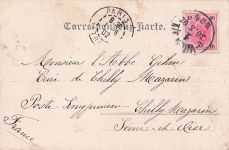 PARIS
Correspondenz-Karte.
Monsieur l'Abbé
Curé de Chilly Mazarin
Poste Longjumeau
Chilly Mazarin
Seine-et-Oise
France